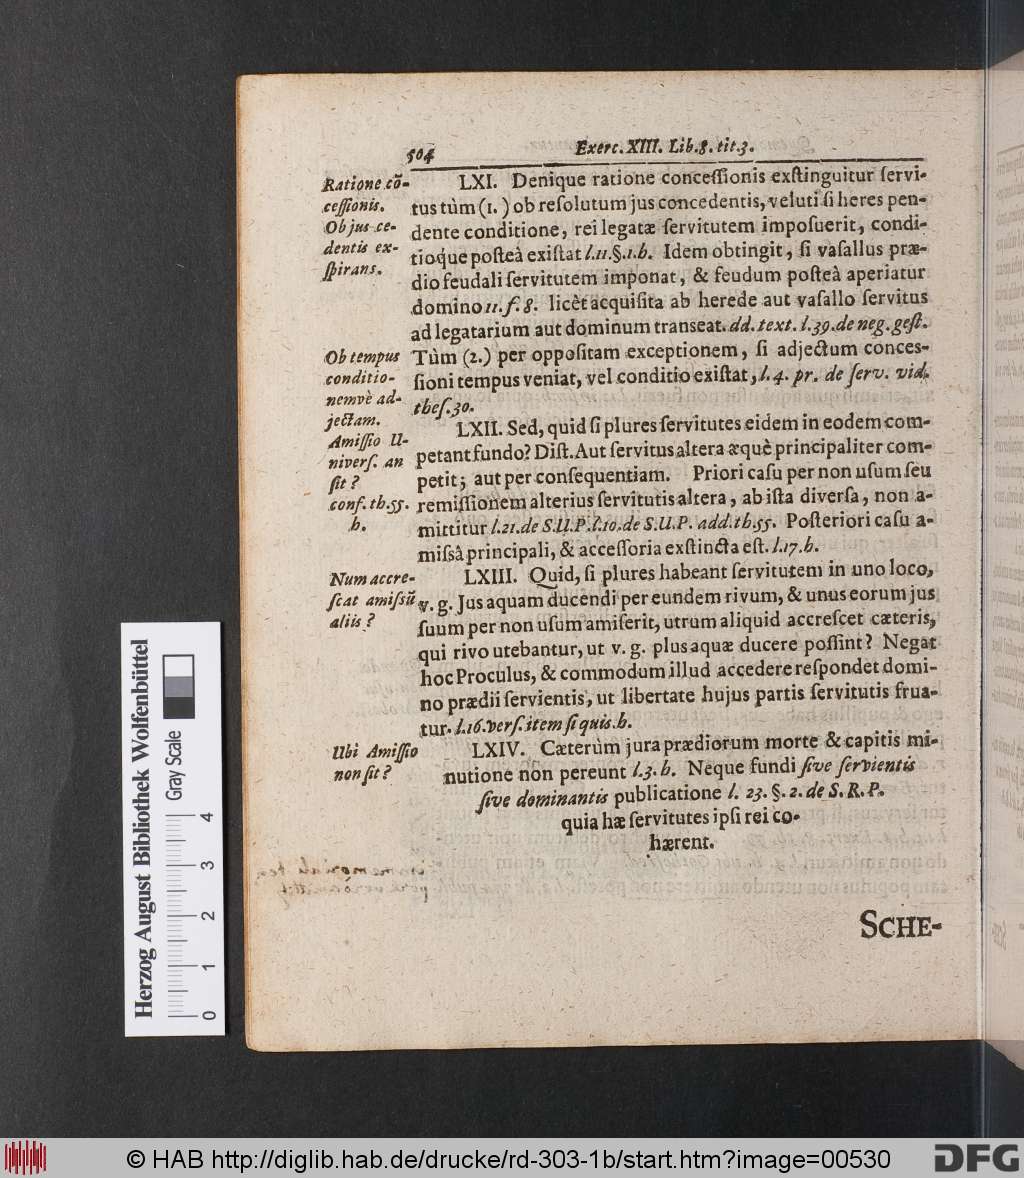 504
Exerc. XIII. Lib. 8. tit. 3.
Ratione cõ-
cessionis.
Ob jus ce-
dentis ex-
spirans.
LXI. Denique ratione concessionis exstinguitur servi-
tus tùm (1.) ob resolutum jus concedentis, veluti si heres pen-
dente conditione, rei legatæ servitutem imposuerit, condi-
tioque posteà existat l. 11. §. 1. h. Idem obtingit, si vasallus præ-
dio feudali servitutem imponat, & feudum posteà aperiatur
domino 11. f. 8. licèt acquisita ab herede aut vasallo servitus
ad legatarium aut dominum transeat. dd. text. l. 39. de neg. gest.
Ob tempus
conditio-
nemvè ad-
jectam.
Tùm (2.) per oppositam exceptionem, si adjectum conces-
sioni tempus veniat, vel conditio existat, l. 4. pr. de serv. vid.
thes. 30.
Amissio U-
nivers. an
sit?
conf. th. 55.
h.
LXII. Sed, quid si plures servitutes eidem in eodem com-
petant fundo? Dist. Aut servitus altera æquè principaliter com-
petit; aut per consequentiam. Priori casu per non usum seu
remissionem alterius servitutis altera, ab ista diversa, non a-
mittitur l. 21. de S. U. P. l. 10. de S. U. P. add. th. 55. Posteriori casu a-
missâ principali, & accessoria exstincta est. l. 17. h.
Num accre-
scat amissũ
aliis?
LXIII. Quid, si plures habeant servitutem in uno loco,
v. g. Jus aquam ducendi per eundem rivum, & unus eorum jus
suum per non usum amiserit, utrum aliquid accrescet cæteris,
qui rivo utebantur, ut v. g. plus aquæ ducere possint? Negat
hoc Proculus, & commodum illud accedere respondet domi-
no prædii servientis, ut libertate hujus partis servitutis frua-
tur. l. 16. vers. item si quis. h.
Ubi Amissio
non sit?
LXIV. Cæterùm jura prædiorum morte & capitis mi-
nutione non pereunt l. 3. h. Neque fundi sive servientis
sive dominantis publicatione l. 23. §. 2. de S. R. P.
quia hæ servitutes ipsi rei co-
hærent.
SCHE-
Herzog August Bibliothek Wolfenbüttel
Gray Scale
0 1 2 3 4
© HAB http://diglib.hab.de/drucke/rd-303-1b/start.htm?image=00530
DFG